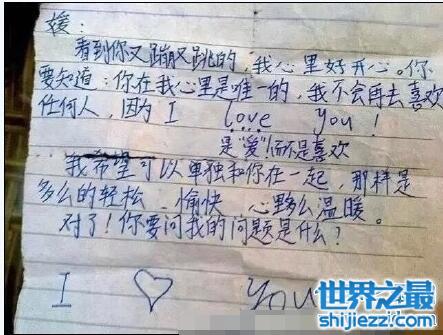 媛：
看到你又蹦又跳的，我心里好开心。你
要知道：你在我心里是唯一的，我不会再去喜欢
任何人，因为 I love you！
是“爱”！而不是喜欢
我希望可以单独和你在一起，那样是
多么的轻松、愉快 心里多么温暖。
对了！你要问我的问题是什么？
I ♡ You
世界之最
shijiezzj.com